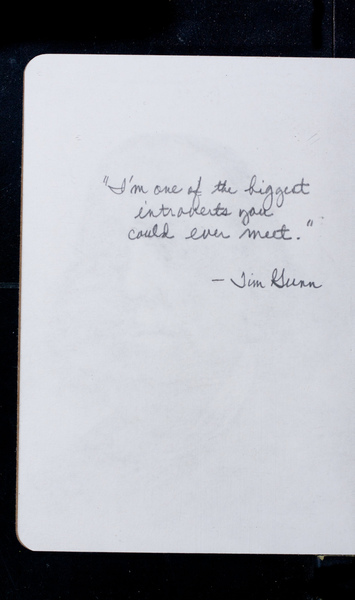 "I'm one of the biggest
introverts you
could ever meet."
— Tim Gunn